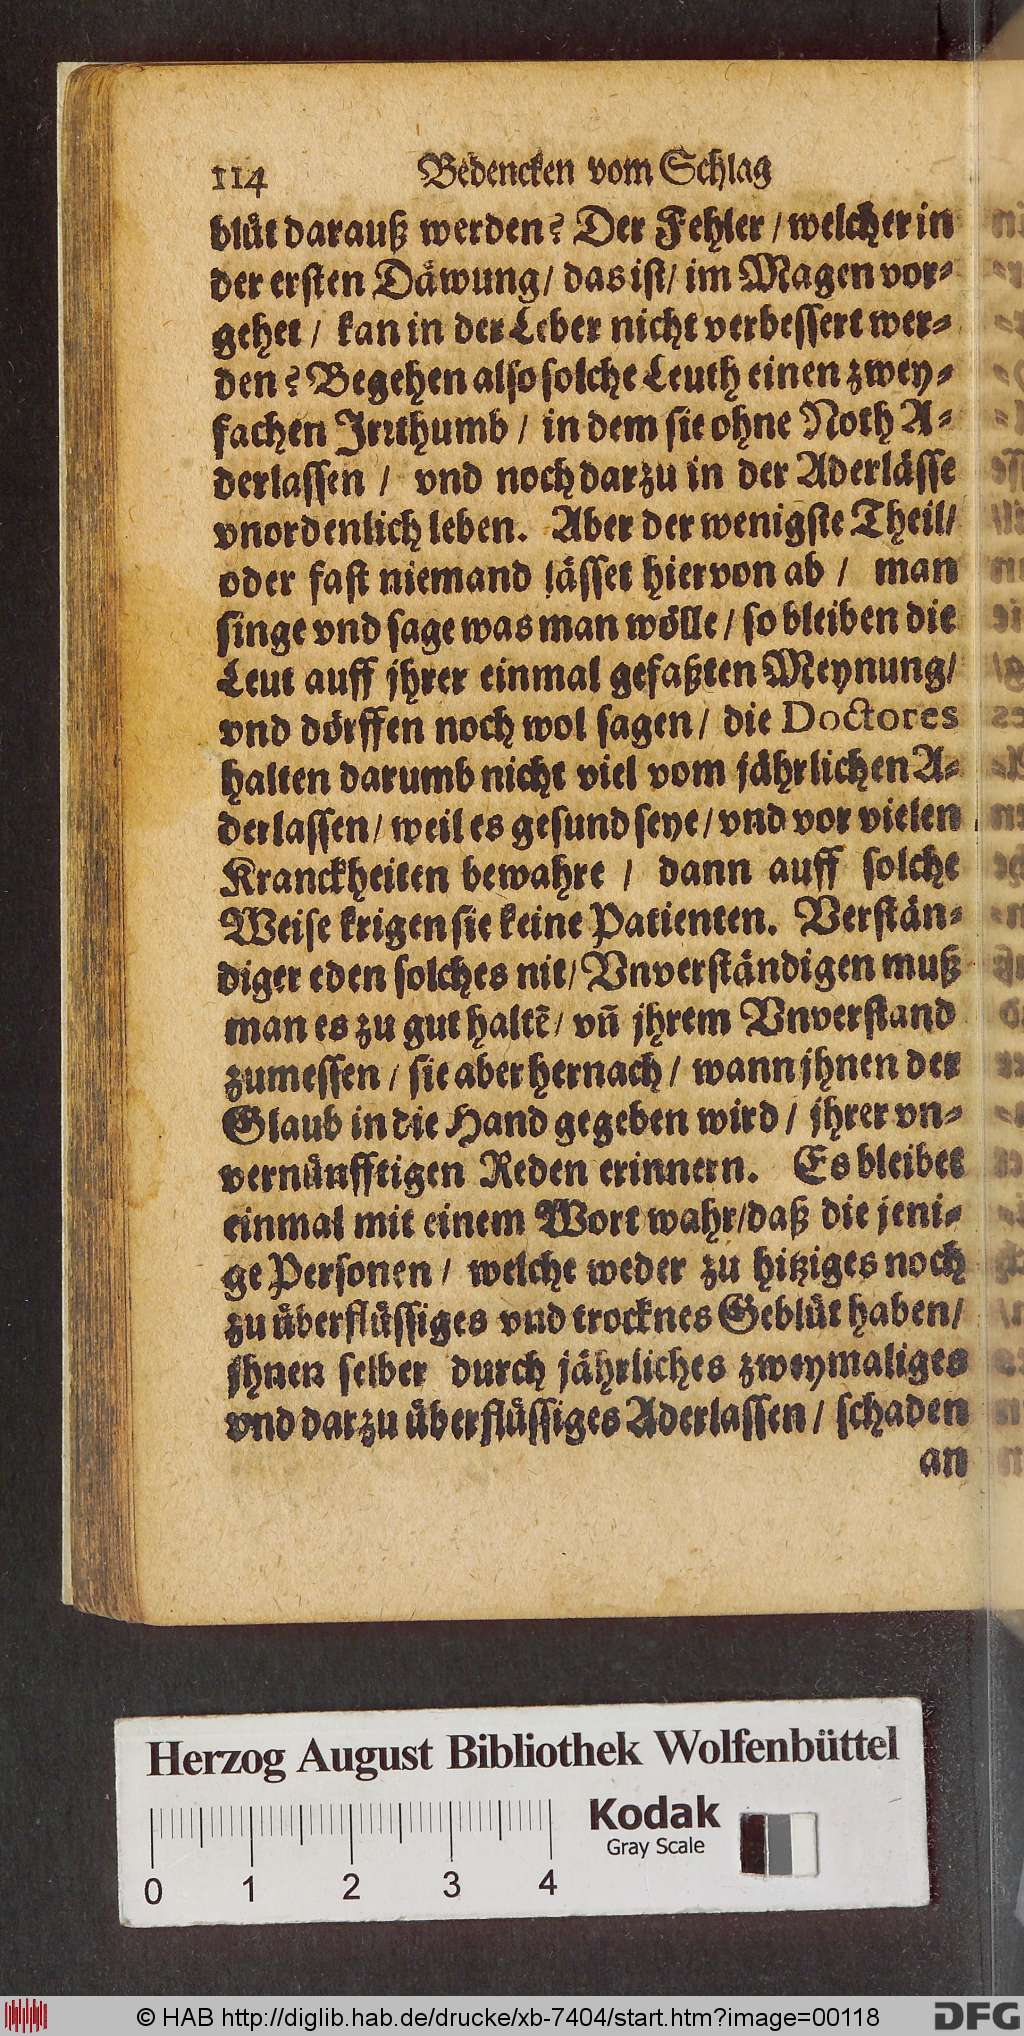 114 Bedencken vom Schlag
blůt darauß werden? Der Fehler / welcher in
der ersten Dåwung / das ist / im Magen vor⸗
gehet / kan in der Leber nicht verbessert wer⸗
den? Begehen also solche Leuth einen zwey⸗
fachen Irꝛthumb / in dem sie ohne Noth A⸗
derlassen / vnd noch darzu in der Aderlässe
vnordenlich leben. Aber der wenigste Theil /
oder fast niemand lässet hiervon ab / man
singe vnd sage was man wölle / so bleiben die
Leut auff jhrer einmal gefaßten Meynung /
vnd dörffen noch wol sagen / die Doctores
halten darumb nicht viel vom jährlichen A⸗
derlassen / weil es gesund seye / vnd vor vielen
Kranckheiten bewahre / dann auff solche
Weise krigen sie keine Patienten. Verstän⸗
diger eden solches nit / Vnverständigen muß
man es zu gut haltẽ / vñ jhrem Vnverstand
zumessen / sie aber hernach / wann jhnen der
Glaub in die Hand gegeben wird / jhrer vn⸗
vernůnfftigen Reden erinnern. Es bleibet
einmal mit einem Wort wahr / daß die jeni⸗
ge Personen / welche weder zu hitziges noch
zu ůberflůssiges vnd trocknes Geblůt haben /
jhnen selber durch jährliches zweymaliges
vnd darzu ůberflůssiges Aderlassen / schaden
an
Herzog August Bibliothek Wolfenbüttel
Kodak
Gray Scale
0 1 2 3 4
© HAB http://diglib.hab.de/drucke/xb-7404/start.htm?image=00118
DFG